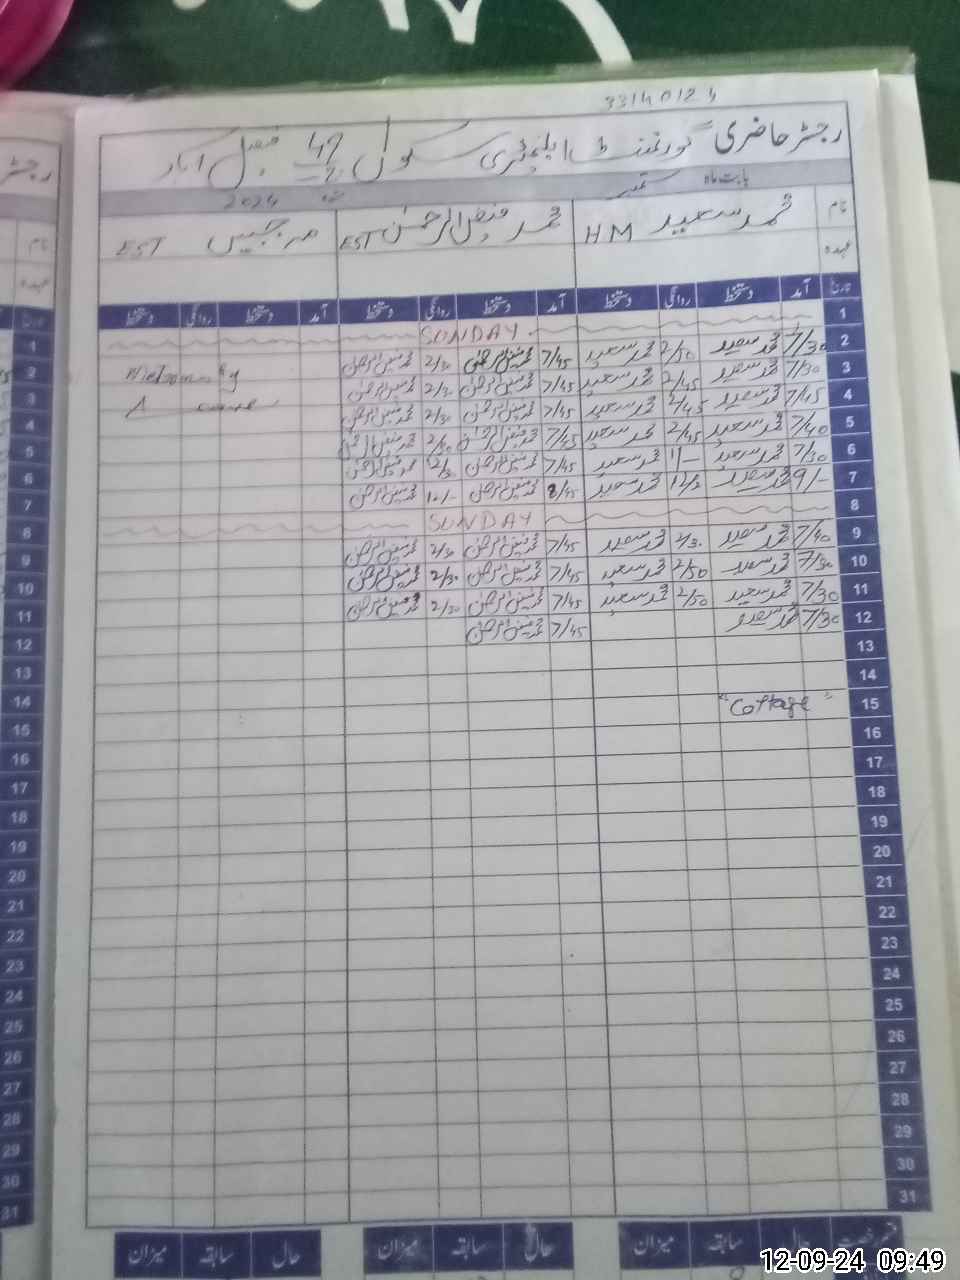 33140124
رجسٹر حاضری گورنمنٹ ایلیمنٹری سکول 49 فیصل آباد
بابت ماہ ستمبر 2024
نام محمد سعید HM محمد فیض الرحمٰن EST مہ جبیں EST
عہدہ
تاریخ آمد دستخط روانگی دستخط آمد دستخط روانگی دستخط آمد دستخط روانگی دستخط
1 SUNDAY
2 7/30 محمد سعید 2/50 محمد سعید 7/45 محمد فیض الرحمٰن 2/30 محمد فیض الرحمٰن
3 7/30 محمد سعید 2/45 محمد سعید 7/45 محمد فیض الرحمٰن 2/30 محمد فیض الرحمٰن
4 7/45 محمد سعید 2/45 محمد سعید 7/45 محمد فیض الرحمٰن 2/30 محمد فیض الرحمٰن
5 7/40 محمد سعید 2/45 محمد سعید 7/45 محمد فیض الرحمٰن 2/30 محمد فیض الرحمٰن
6 7/30 محمد سعید 1/- محمد سعید 7/45 محمد فیض الرحمٰن 12/30 محمد فیض الرحمٰن
7 9/- محمد سعید 12/2 محمد سعید 8/45 محمد فیض الرحمٰن 12/- محمد فیض الرحمٰن
8 SUNDAY
9 7/40 محمد سعید 2/30 محمد سعید 7/45 محمد فیض الرحمٰن 2/30 محمد فیض الرحمٰن
10 7/30 محمد سعید 2/50 محمد سعید 7/45 محمد فیض الرحمٰن 2/30 محمد فیض الرحمٰن
11 7/30 محمد سعید 2/50 محمد سعید 7/45 محمد فیض الرحمٰن 2/30 محمد فیض الرحمٰن
12 7/30 محمد سعید 7/45 محمد فیض الرحمٰن
13
14
15 "Cottage"
16
17
18
19
20
21
22
23
24
25
26
27
28
29
30
31
حال سابقہ میزان حال سابقہ میزان حال سابقہ میزان
12-09-24 09:49